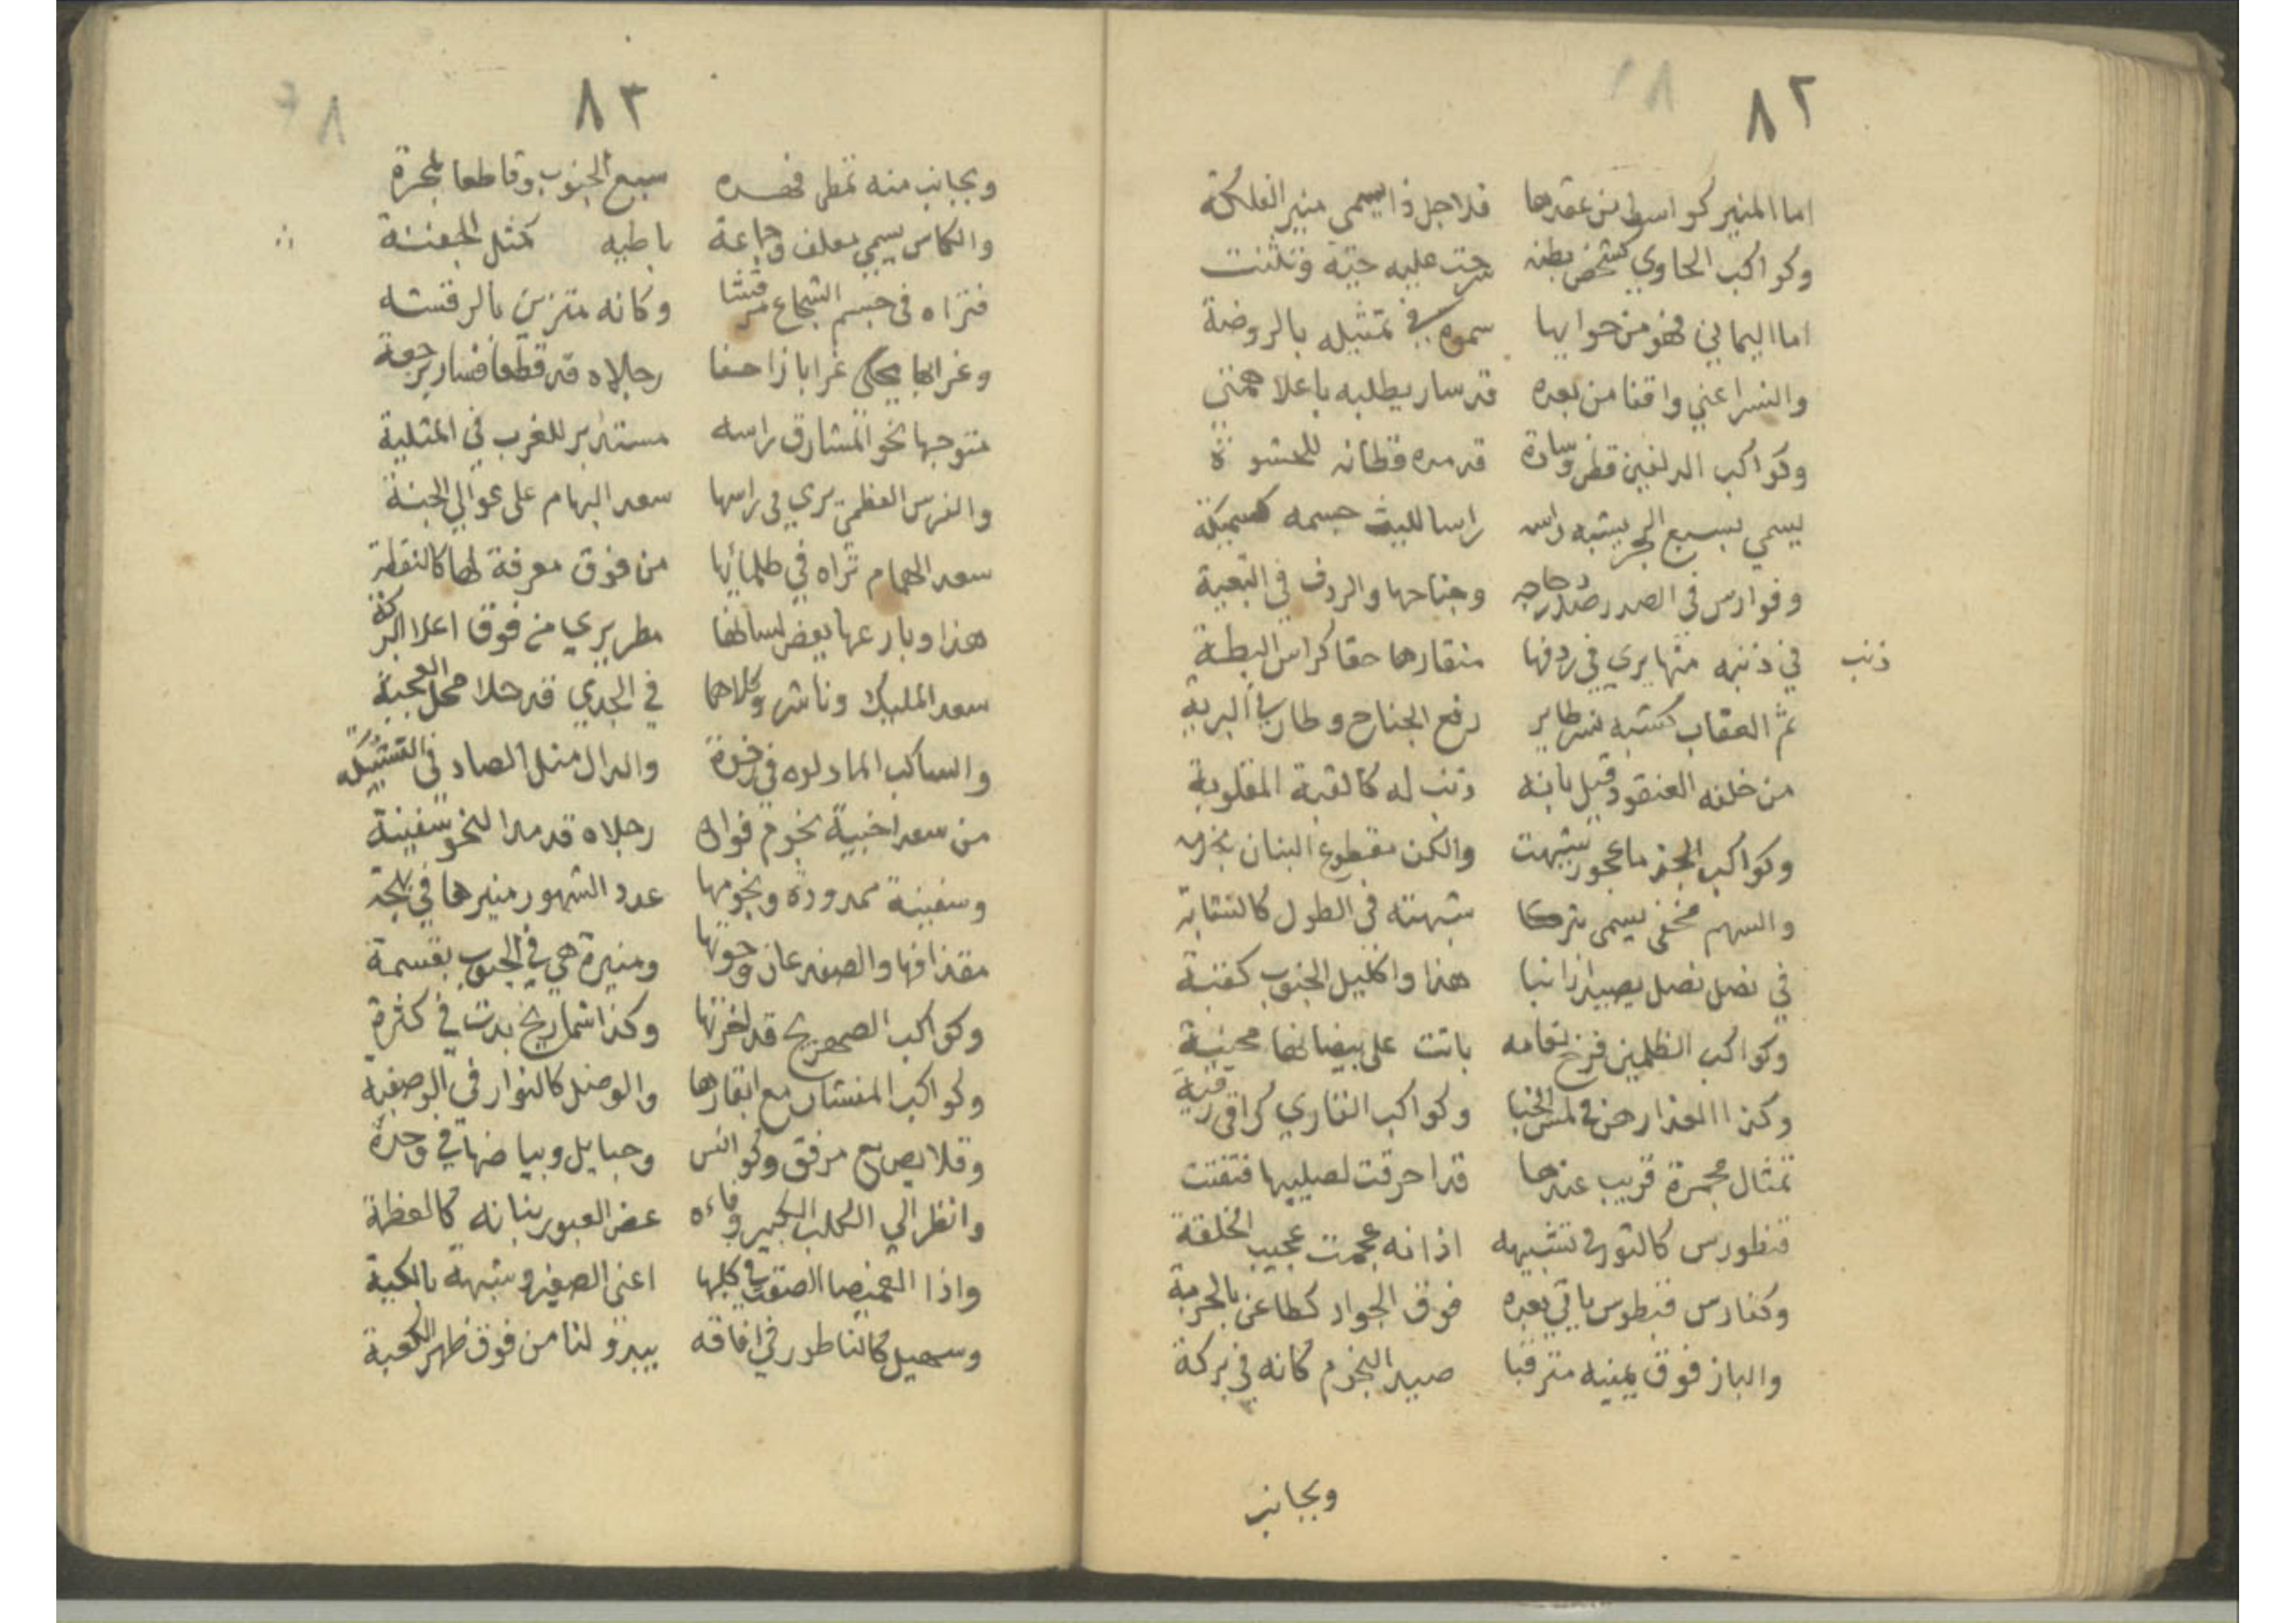 ٨٢
اما المنير كواسط من عقدها فلاجل ذا يسمى منير الفلكة
وكواكب الحاوي كشخص بطنه حية وتلنت
اما اليماني فهو من حوايها سموه في تمثيله بالروضة
والنسر اعني واقفا من بعده قد سار يطلبه باعلا همتي
وكواكب الدلفين قطن وسادة قد مده قطانه للحشوة
يسمي بسبع البحر يشبه راس راسا لليث جسمه كسميكة
وفوارس في الصدر صدر دجاجه وجناحها والردف في التعبية
ذنب
في ذنبه منها يري في ردفها منقارها حقا كراس البطة
ثم العقاب كشبه نسر طاير رفع الجناح وطار في البرية
من خلفه العنقود قيل بانه ذنب له كالقبة المقلوبة
وكواكب الجذما عجوز شبهت والكف مقطوع البنان
والسهم مخفي يسمى شبهته في الطول كالنشابة
في نصل نصل هذا واكليل الجنوب كفتة
وكواكب الظلمين فرخ نعامه باتت على بيضاتها محنية
وكذا العذارا هن في الخبا وكواكب القاري
تمثال مجمرة قريب عندها قد احرقت لصليبها فتفتت
قنطورس كالثور في تشبيهه اذانه عجمت عجيب الخلقة
وكفارس قنطوس ياتي بعده فوق الجواد كطاعن بالحربة
والباز فوق يمينه مترقبا صيد النجوم كانه في بركة
وبجانب
٨٣
وبجانب منه تمطى فهده سبع الجنوب وقاطعا لمجرة
والكاس يسمي بمعلف وجماعة باطيه كمثل الجفنة
فتراه في جسم الشجاع مرقشا وكانه متزين بالرقشه
وغرابها يحكى غرابا زاحفا رجلاه قد قطعا فسار برجعة
متوجها نحو المشارق راسه مستدبر للغرب في المثلية
والفرس العظمى يري في راسها سعد البهام على عوالي الجبنة
سعد الهمام تراه في ظلمائها من فوق معرفة لها كالنقطة
هذا وبارعها بعض لسانها مطر يري من فوق اعلا البركة
سعد المليك وناشر وكلاهما في الجدي قد حلا محل العجبة
والساكب الما دلوه في والدال مثل الصاد في
من سعد اخبية نجوم فواده رجلاه قد مدا لنحو سفينة
وسفينة ممدودة ونجومها عدد الشهور منيرها في لجة
مقذافها والصفدعان وحوتها ومنيرة هي في الجنوب بقسمة
وكواكب الصهريج قد وكذا شماريخ بدت في كثرة
وكواكب المنشار مع ابقارها والوصل كالنوار في الوصفية
وقلايص مع مرفق وكوانس وحبايل وبياضها في وحدة
وانظر الي الكلب الكبير وفاءه عض العبور بنابه كالعظمة
واذا الغميصا كلبها اعنى الصغير وشبهة بالكبة
وسهيل كالناطور في افاقه يبدو لنا من فوق ظهر الكعبة